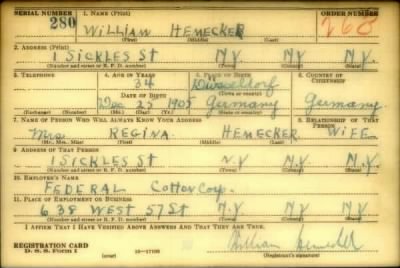 SERIAL NUMBER 1. NAME (Print) ORDER NUMBER
280 WILLIAM HEMECKER 268
(First) (Middle) (Last)
2. ADDRESS (Print)
1 SICKLES ST N.Y. N.Y. N.Y.
(Number and street or R. F. D. number) (Town) (County) (State)
3. TELEPHONE 4. AGE IN YEARS 5. PLACE OF BIRTH 6. COUNTRY OF CITIZENSHIP
34 Düsseldorf
DATE OF BIRTH (Town or county)
Dec 25 1905 Germany Germany
(Exchange) (Number) (Mo.) (Day) (Yr.) (State or country)
7. NAME OF PERSON WHO WILL ALWAYS KNOW YOUR ADDRESS 8. RELATIONSHIP OF THAT PERSON
Mrs. REGINA HEMECKER WIFE
(Mr., Mrs., Miss) (First) (Middle) (Last)
9. ADDRESS OF THAT PERSON
1 SICKLES ST N.Y. N.Y. N.Y.
(Number and street or R. F. D. number) (Town) (County) (State)
10. EMPLOYER'S NAME
FEDERAL Cotton Corp.
11. PLACE OF EMPLOYMENT OR BUSINESS
638 WEST 57 ST N.Y. N.Y. N.Y.
(Number and street or R. F. D. number) (Town) (County) (State)
I AFFIRM THAT I HAVE VERIFIED ABOVE ANSWERS AND THAT THEY ARE TRUE.
REGISTRATION CARD William Hemecker
D. S. S. Form 1 (over) (Registrant's signature)